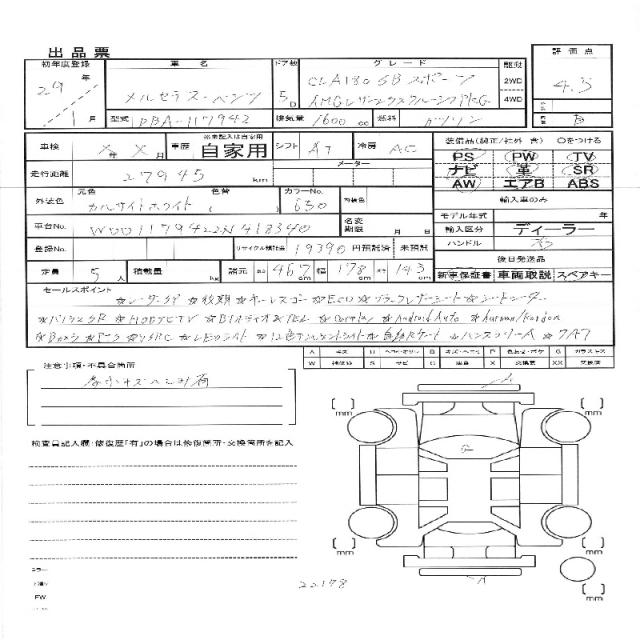 出品票
初年度登録 車名 ドア数 グレード 駆動 評価点
29年 メルセデス・ベンツ 5D CLA180 SB スポーツ 2WD 4.5
AMGレザーエクスクルーシブPKG 4WD
1月 型式 DBA-117942 排気量 1600cc 燃料 ガソリン B
車検 X年X月 車歴 ※未記入は自家用 自家用 シフト AT 冷房 AC 装備品(純正/社外 含) ○をつける
PS PW TV
走行距離 27945 km メーター ナビ 革 SR
AW エアB ABS
外装色 元色 カルサイトホワイト 色替 ( ) カラーNo. 650 内装色 輸入車のみ
モデル年式 年
車台No. WDD1179422N418340 名変期限 月 日 輸入区分 ディーラー
登録No. リサイクル預託金 19390 円預託済 未預託 ハンドル 右
後日発送品
定員 5人 積載量 kg 諸元 長さ 467cm 幅 178cm 高さ 143cm 新車保証書 車両取説 スペアキー
セールスポイント
☆レーダーSP ☆後期 ☆キーレスゴー ☆ECO ☆ブラックレザーシート ☆シートヒーター
☆パノラマSR ☆HDDナビTV ☆BTオーディオ&TEL ☆Carplay ☆Android Auto ☆harman/kardon
☆Bカメラ ☆PTS ☆LEDライト ☆12色アンビエントライト ☆自動Rゲート ☆ハンズフリーA ☆7AT
A キズ U ヘコ・ギズリ B キズ・ヘコ P 色あせ・ボケ G ガラスキズ
W S サビ C 腐食 X 交換要 XX 交換済
注意事項・不具合箇所
各所小キズヘコミ有
検査員記入欄:修復歴『有』の場合は修復箇所・交換箇所を記入
mm mm
A
mm mm
A
mm
22178